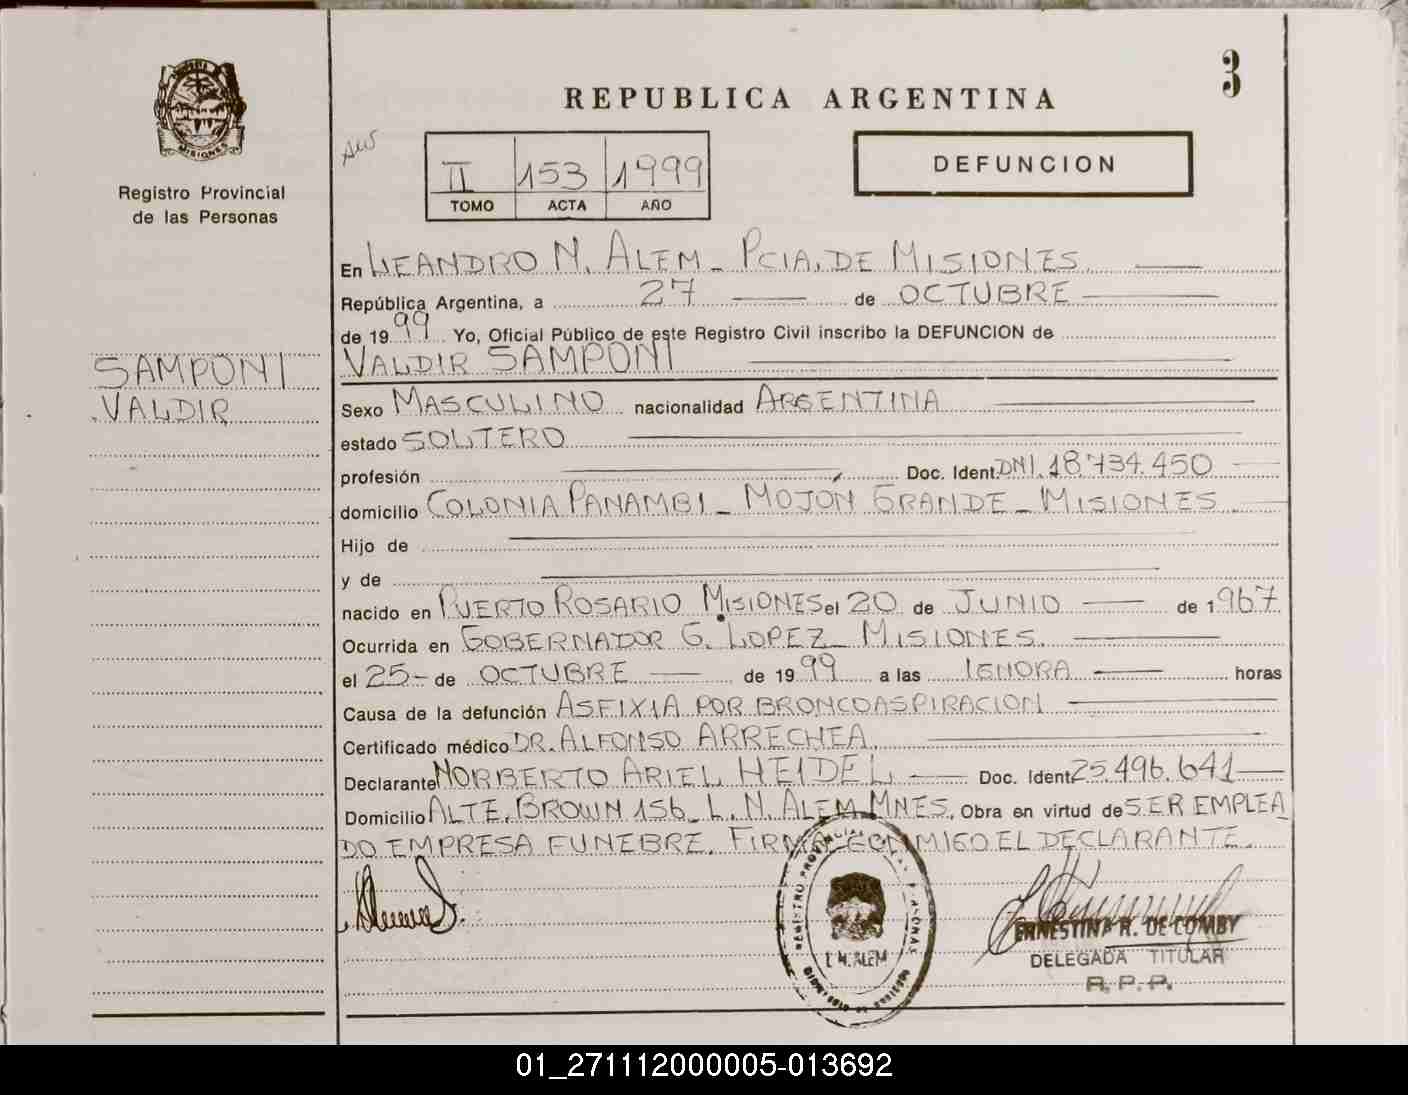 3
REPUBLICA ARGENTINA
MISIONES
Registro Provincial
de las Personas
DEFUNCION
II 153 1999
TOMO ACTA AÑO
En LEANDRO N. ALEM - PCIA. DE MISIONES
República Argentina, a 27 de OCTUBRE
de 1999 Yo, Oficial Público de este Registro Civil inscribo la DEFUNCION de
VALDIR SAMPONI
SAMPONI
VALDIR
Sexo MASCULINO nacionalidad ARGENTINA
estado SOLTERO
profesión Doc. Ident. DNI. 18.734.450
domicilio COLONIA PANAMBI - MOJON GRANDE - MISIONES
Hijo de
y de
nacido en PUERTO ROSARIO MISIONES el 20 de JUNIO de 1967
Ocurrida en GOBERNADOR G. LOPEZ - MISIONES.
el 25 - de OCTUBRE de 1999 a las IGNORA horas
Causa de la defunción ASFIXIA POR BRONCOASPIRACION
Certificado médico DR. ALFONSO ARRECHEA.
Declarante NORBERTO ARIEL HEIDEL Doc. Ident. 25.496.641
Domicilio ALTE. BROWN 156 - L. N. ALEM MNES. Obra en virtud de SER EMPLEA
DO EMPRESA FUNEBRE. FIRMA CONMIGO EL DECLARANTE.
REGISTRO PROVINCIAL DE LAS PERSONAS
L. N. ALEM
ERNESTINA R. DE COMBY
DELEGADA TITULAR
R. P. P.
01_271112000005-013692